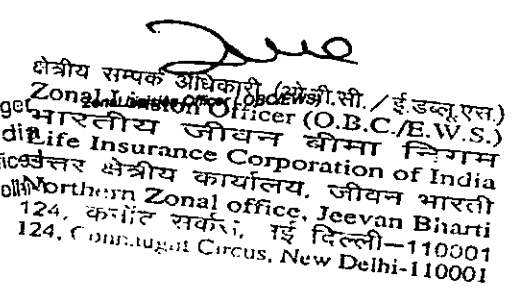 क्षेत्रीय सम्पर्क अधिकारी (ओ.बी.सी. / ई.डब्लू.एस.)
Zonal Liaison Officer (OBC/EWS)
Zonal Liaison Officer (O.B.C./E.W.S.)
भारतीय जीवन बीमा निगम
Life Insurance Corporation of India
उत्तर क्षेत्रीय कार्यालय, जीवन भारती
Northern Zonal office, Jeevan Bharti
124, कनॉट सर्कस, नई दिल्ली–110001
124, Connaught Circus, New Delhi-110001